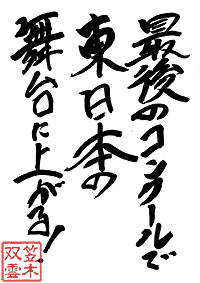 最後のコンクールで
東日本の
舞台に上がる！
笠木
双雲